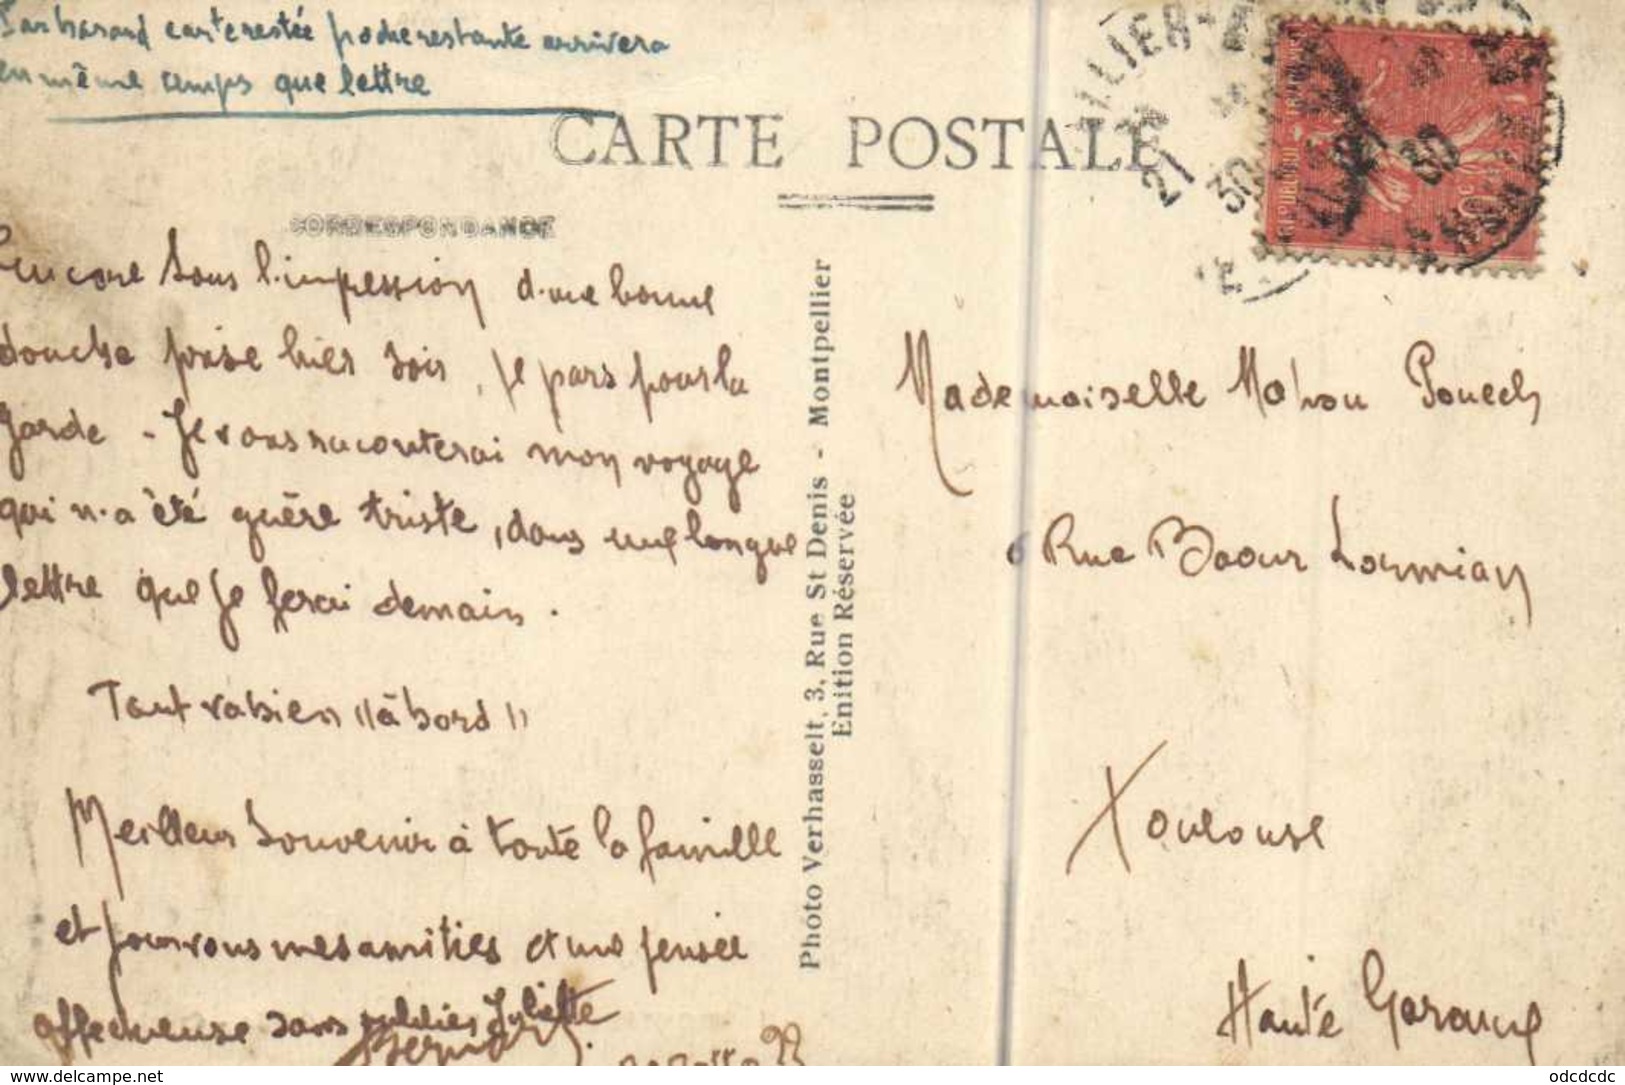 Par hasard carte restée poche restante arrivera
en même temps que lettre
CARTE POSTALE
CORRESPONDANCE
21
30
30
Encore sous l'impression d'une bonne
douche prise hier soir, je pars pour la
garde - Je vous raconterai mon voyage
qui n'a été guère triste, dans une longue
lettre que je ferai demain.
Tout va bien "à bord"
Meilleur souvenir à toute la famille
et pour vous mes amitiés et une pensée
affectueuse sans oublier Juliette
Bernard
Photo Verhasselt, 3, Rue St Denis - Montpellier
Enition Réservée
Mademoiselle Pouech
6 Rue Baour Lormian
Toulouse
Haute Garonne
www.delcampe.net
odcdcdc